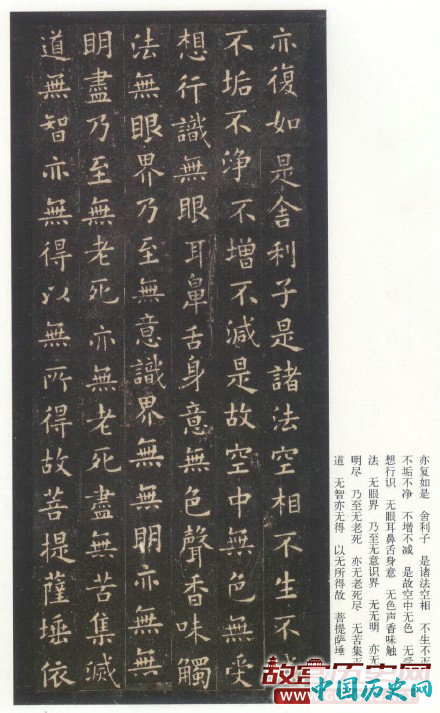 亦復如是舍利子是諸法空相不生不
不垢不淨不增不減是故空中無色無受
想行識無眼耳鼻舌身意無色聲香味觸
法無眼界乃至無意識界無無明亦無無
明盡乃至無老死亦無老死盡無苦集滅
道無智亦無得以無所得故菩提薩埵依
亦复如是 舍利子 是诸法空相 不生不
不垢不净 不增不减 是故空中无色 无受
想行识 无眼耳鼻舌身意 无色声香味触
法 无眼界 乃至无意识界 无无明 亦无
明尽 乃至无老死 亦无老死尽 无苦集
道 无智亦无得 以无所得故 菩提萨埵
中国历史网